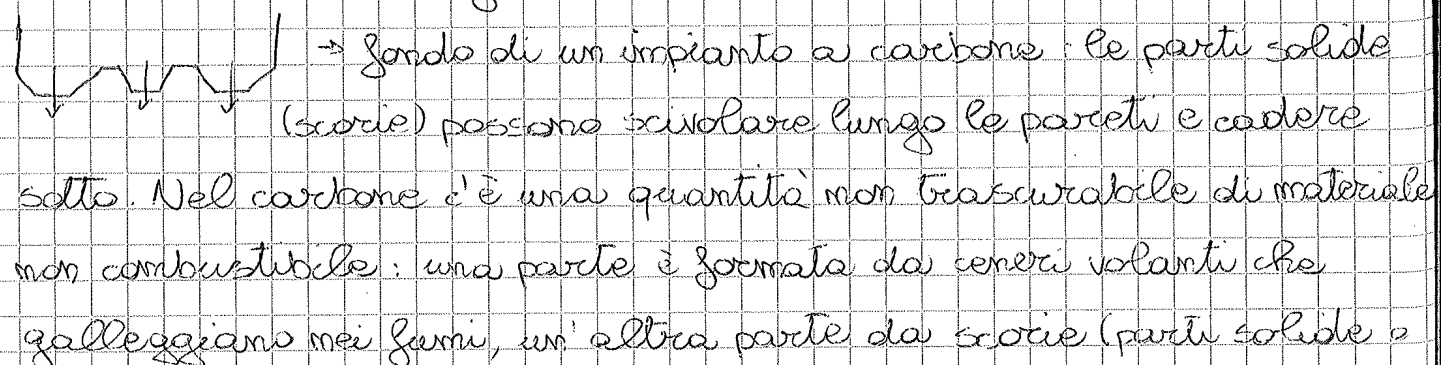 → fondo di un impianto a carbone: le parti solide
(scorie) possono scivolare lungo le pareti e cadere
sotto. Nel carbone c'è una quantità non trascurabile di materiale
non combustibile: una parte è formata da ceneri volanti che
galleggiano nei fumi, un'altra parte da scorie (parti solide o